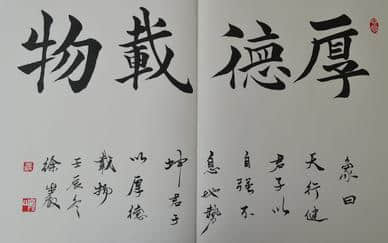 厚德載物
象曰
天行健
君子以
自强不
息地勢
坤君子
以厚德
載物
壬辰冬
徐